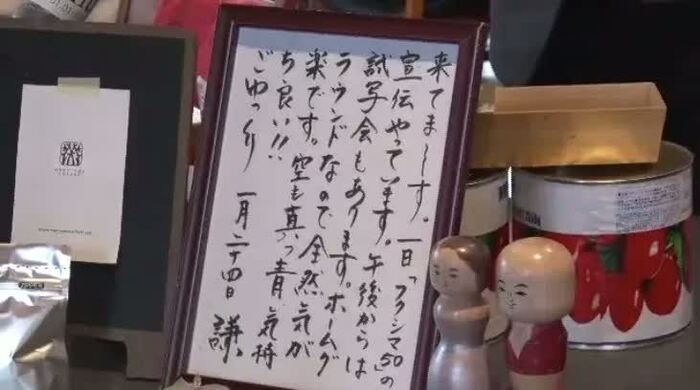 来てまーす。一日「フクシマ50」の
宣伝やっています。午後からは
試写会もあります。ホームグ
ラウンドなので全然気が
楽です。空も真っ青、気持
ち良い!!
ごゆっくり 一月二十四日 謙